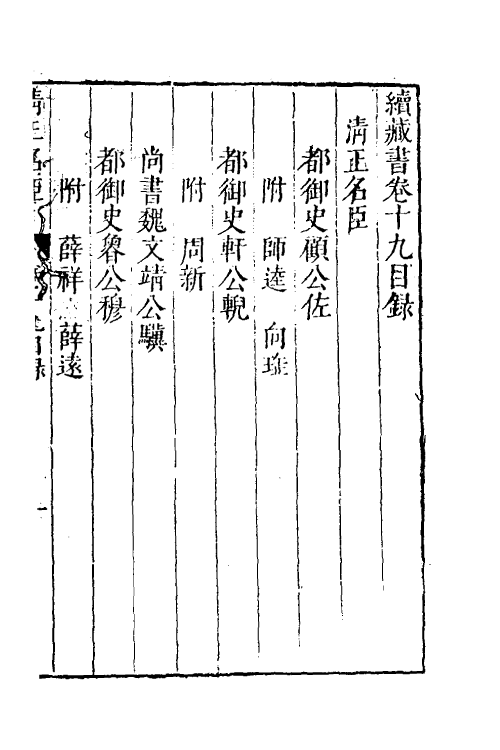 續藏書卷十九目録
清正名臣
都御史顧公佐
附 師逵 向瑤
都御史軒公輗
附 周新
尚書魏文靖公驥
都御史魯公穆
附 薛祥 薛遠
清正名臣 目録 一